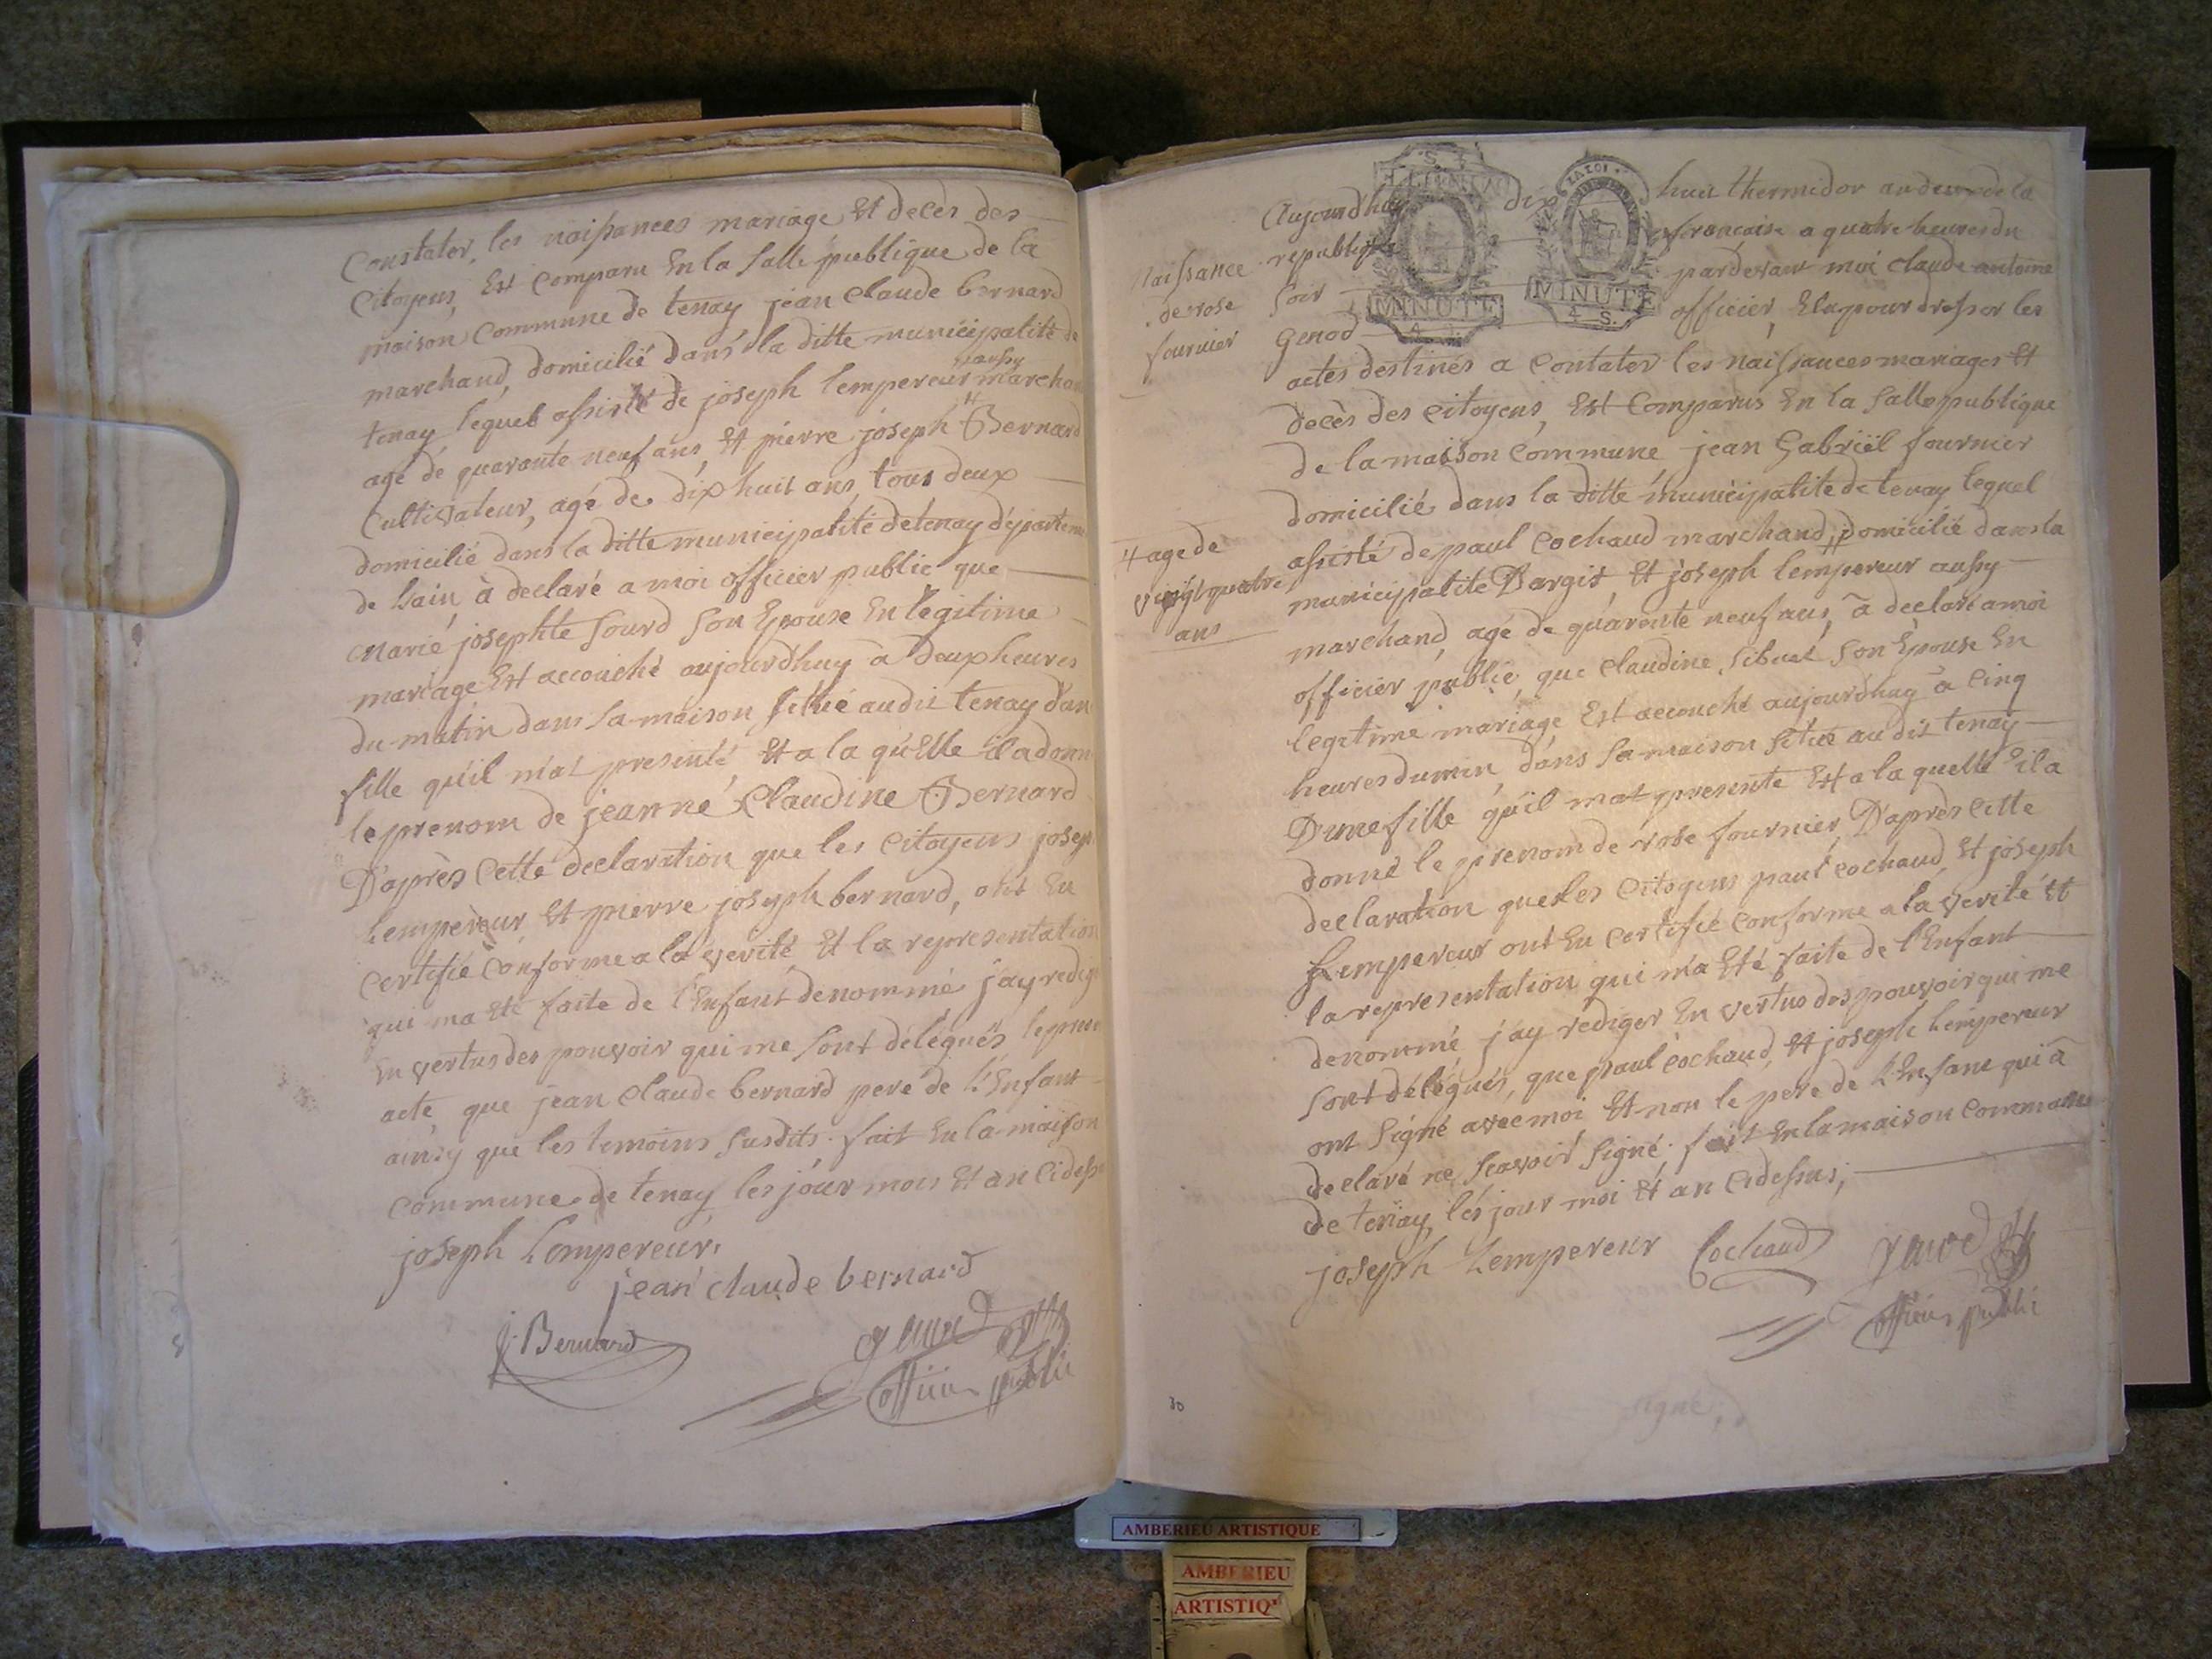 Constater, les naissances mariage Et decès des
Citoyens, Est comparu En la salle publique de la
maison Commune de tenay jean claude bernard
marchand, domicilié dans la ditte municipalité de
aussy
tenay lequel assisté de joseph lempereur marchand
agé de quarante neuf ans, Et pierre joseph Bernard
Cultivateur, agé de dix huit ans, tous deux
domicilié dans la ditte municipalité de tenay departeme
de Lain, à declaré a moi officier public que
marie josephte Sourd Son Epouse En legitime
mariage Est accouché aujourdhuy à Deux heures
du matin dans sa maison sittué audit tenay d'un
fille quil mat presenté Et a la quelle il a donn
le prenom de jeanne Claudine Bernard
D'après Cette declaration que les Citoyens josep
Lempereur Et pierre joseph bernard, ont Eu
certifié conforme a la verité Et la representation
qui ma Eté faite de l'Enfant denommé j'ay redig
En vertus des pouvoir qui me sont délégués le pres
acte, que jean Claude bernard pere de L'Enfant
ainsy que les temoins susdits. fait En la maison
commune de tenay les jour mois Et an Cidess
joseph Lempereur,
jean claude bernard
J. Bernard
genod
officier public
S.
MINUTE
4 S.
MINUTE
4 S.
Aujourdhuy dix huit thermidor an deux de la
republique francaise a quatre heures du
soir pardevant moi claude antoine
Genod officier, Elu pour dresser les
Naissance
de rose
fournier
actes destinés a Contater les naissances mariages Et
decès des citoyens, Est Comparus En la salle publique
de la maison Commune jean Gabriël fournier
domicilié dans la ditte municipalite de tenay lequel
assisté de paul cochaud marchand, domicilié dans la
municipalite Dargit, Et joseph lempereur aussy
# age de
vingt quatre
ans
marchand, agé de quarente neuf ans, à declaré a moi
officier public que Claudine Sibuet son Epouse En
legitime mariage Est accouché aujourdhuy à Cinq
heures du min, dans sa maison situé au dit tenay
D'une fille quil mat presenté Et a la quelle il a
donné le prenom de rose fournier, D'après Cette
declaration que les Citoyens paul cochaud, Et joseph
Lempereur ont Eu certifié conforme a la verité Et
la representation qui m'a Eté faite de l'Enfant
denommé j'ay rediger En vertus des pouvoir qui me
sont délégués, que paul cochaud, Et joseph Lempereur
ont signé avec moi Et non le pere de L'Enfant qui à
declaré ne scavoir signé. fait En la maison commune
de tenay, les jour moi Et an Cidessus;
joseph Lempereur Cochaud genod
officier public
30
signé
AMBERIEU ARTISTIQUE
AMBERIEU
ARTISTIQ